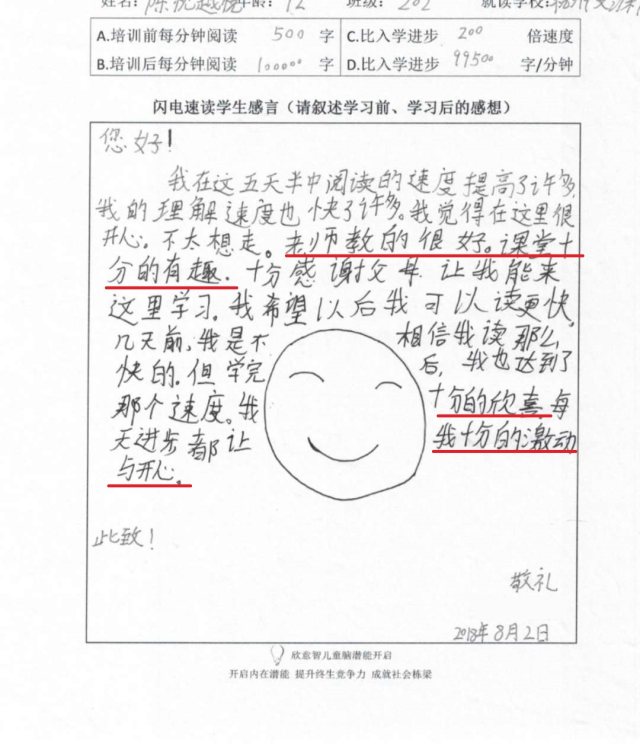 姓名： 年龄：12 班级：202 就读学校：
A.培训前每分钟阅读 500 字 C.比入学进步 200 倍速度
B.培训后每分钟阅读 100000 字 D.比入学进步 99500 字/分钟
闪电速读学生感言（请叙述学习前、学习后的感想）
您好！
我在这五天半中阅读的速度提高了许多，
我的理解速度也快了许多。我觉得在这里很
开心。不太想走。老师教的很好。课堂十
分的有趣．十分感谢父母让我能来
这里学习。我希望以后我可以读更快，
几天前，我是不相信我读那么
快的．但学完后，我也达到了
那个速度。我十分的欣喜每
天进步都让我十分的激动
与开心。
此致！
敬礼
2018年8月2日
欣愈智儿童脑潜能开启
开启内在潜能 提升终生竞争力 成就社会栋梁